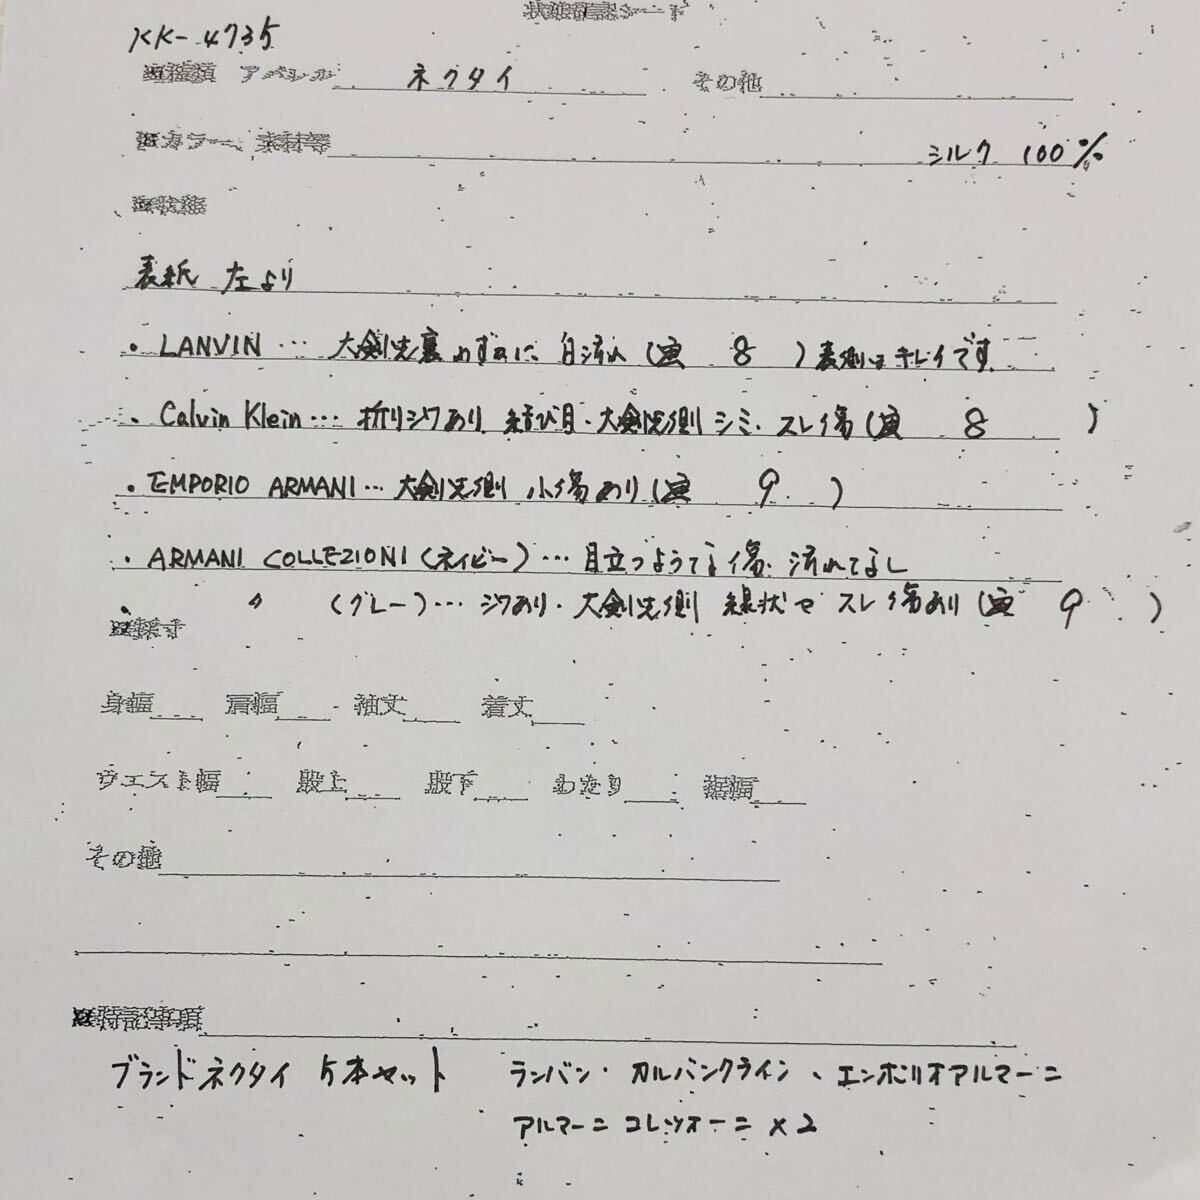 状態確認シート
KK-4735
種類 アパレル ネクタイ その他
カラー、素材等 シルク 100%
状態
表紙 左より
・LANVIN … 大剣先裏 わずかに 白汚れ (画 8 ) 表側はキレイです
・Calvin Klein … 折りジワあり 結び目・大剣先側 シミ・スレ傷 (画 8 )
・EMPORIO ARMANI … 大剣先側 小傷あり (画 9 )
・ARMANI COLLEZIONI (ネイビー) … 目立つような傷、汚れなし
〃 (グレー) … シワあり・大剣先側 線状で スレ傷あり (画 9 )
採寸
身幅 肩幅 袖丈 着丈
ウエスト幅 股上 股下 わたり 裾幅
その他
特記事項
ブランドネクタイ 5本セット ランバン・カルバンクライン、エンポリオアルマーニ
アルマーニ コレツォーニ ×2